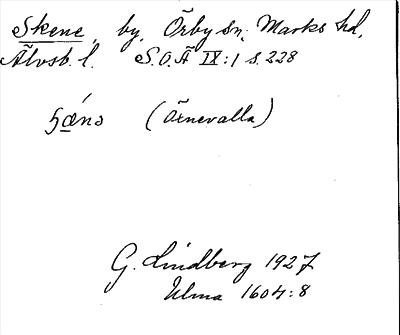 Skene, by, Örby sn, Marks hd,
Älvsb. l. S.O.Ä IX:1 s. 228
(Örnevalla)
G. Lindberg 1927
Ulma 1604:8